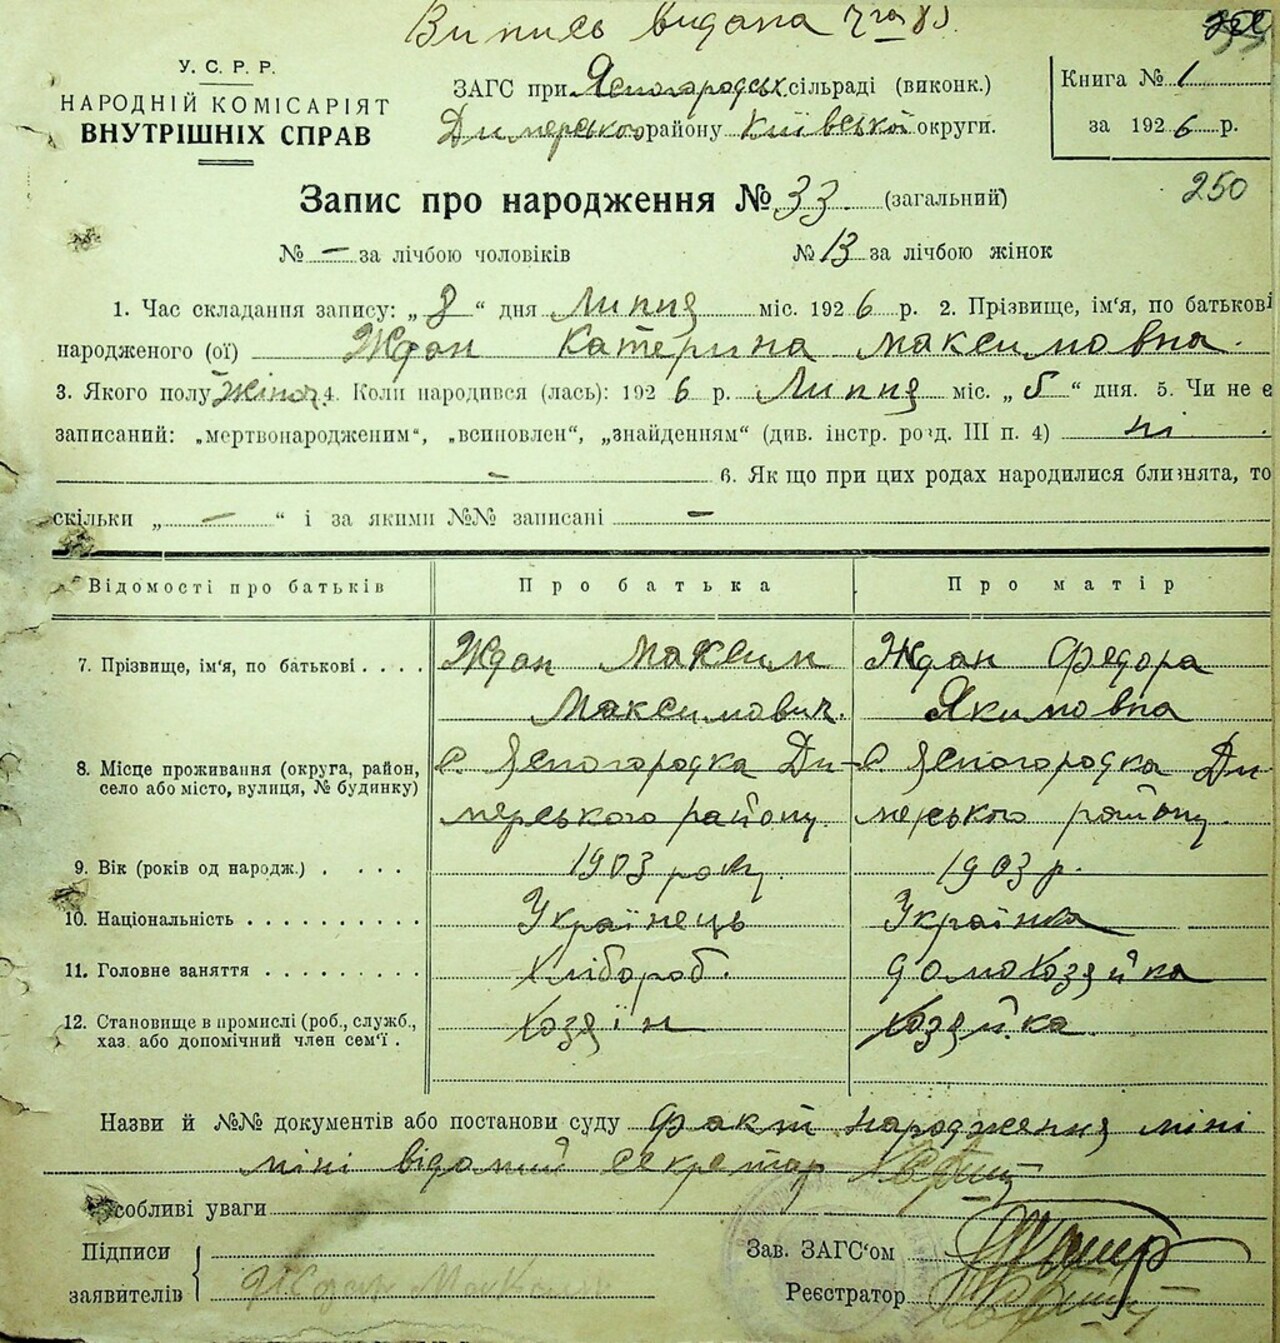 Випись видана
У. С. Р. Р.
НАРОДНІЙ КОМІСАРІЯТ
ВНУТРІШНІХ СПРАВ
ЗАГС при Ясногородськ. сільраді (виконк.)
Димерського району Київської округи.
Книга № 1
за 1926 р.
250
Запис про народження № 33. (загальний)
№ — за лічбою чоловіків № 13 за лічбою жінок
1. Час складання запису: „8“ дня Липня міс. 1926 р. 2. Прізвище, ім'я, по батькові
народженого (ої) Ждан Катерина Максимовна.
3. Якого полу Жіноч. 4. Коли народився (лась): 1926 р. Липня міс. „5“ дня. 5. Чи не є
записаний: „мертвонародженим“, „всиновлен“, „знайденням“ (див. інстр. розд. III п. 4) ні.
— 6. Як що при цих родах народилися близнята, то
скільки „—“ і за якими №№ записані —
Відомості про батьків Про батька Про матір
7. Прізвище, ім'я, по батькові . . . . Ждан Максим Ждан Федора
Максимович. Якимовна
8. Місце проживання (округа, район, с. Ясногородка Ди- с Ясногородка Ди
село або місто, вулиця, № будинку) мерського району. мерського району.
9. Вік (років од народж.) . . . . 1903 року. 1903 р.
10. Національність . . . . . . . . . . Українець Українка
11. Головне заняття . . . . . . . . . Хлібороб. домохозяйка
12. Становище в промислі (роб., служб., Хозяїн Хозяйка.
хаз. або допомічний член сем'ї .
Назви й №№ документів або постанови суду Факт народження міні
міні відомий секретар
Особливі уваги
Підписи
заявителів Ждан Максим
Зав. ЗАГС'ом
Реєстратор